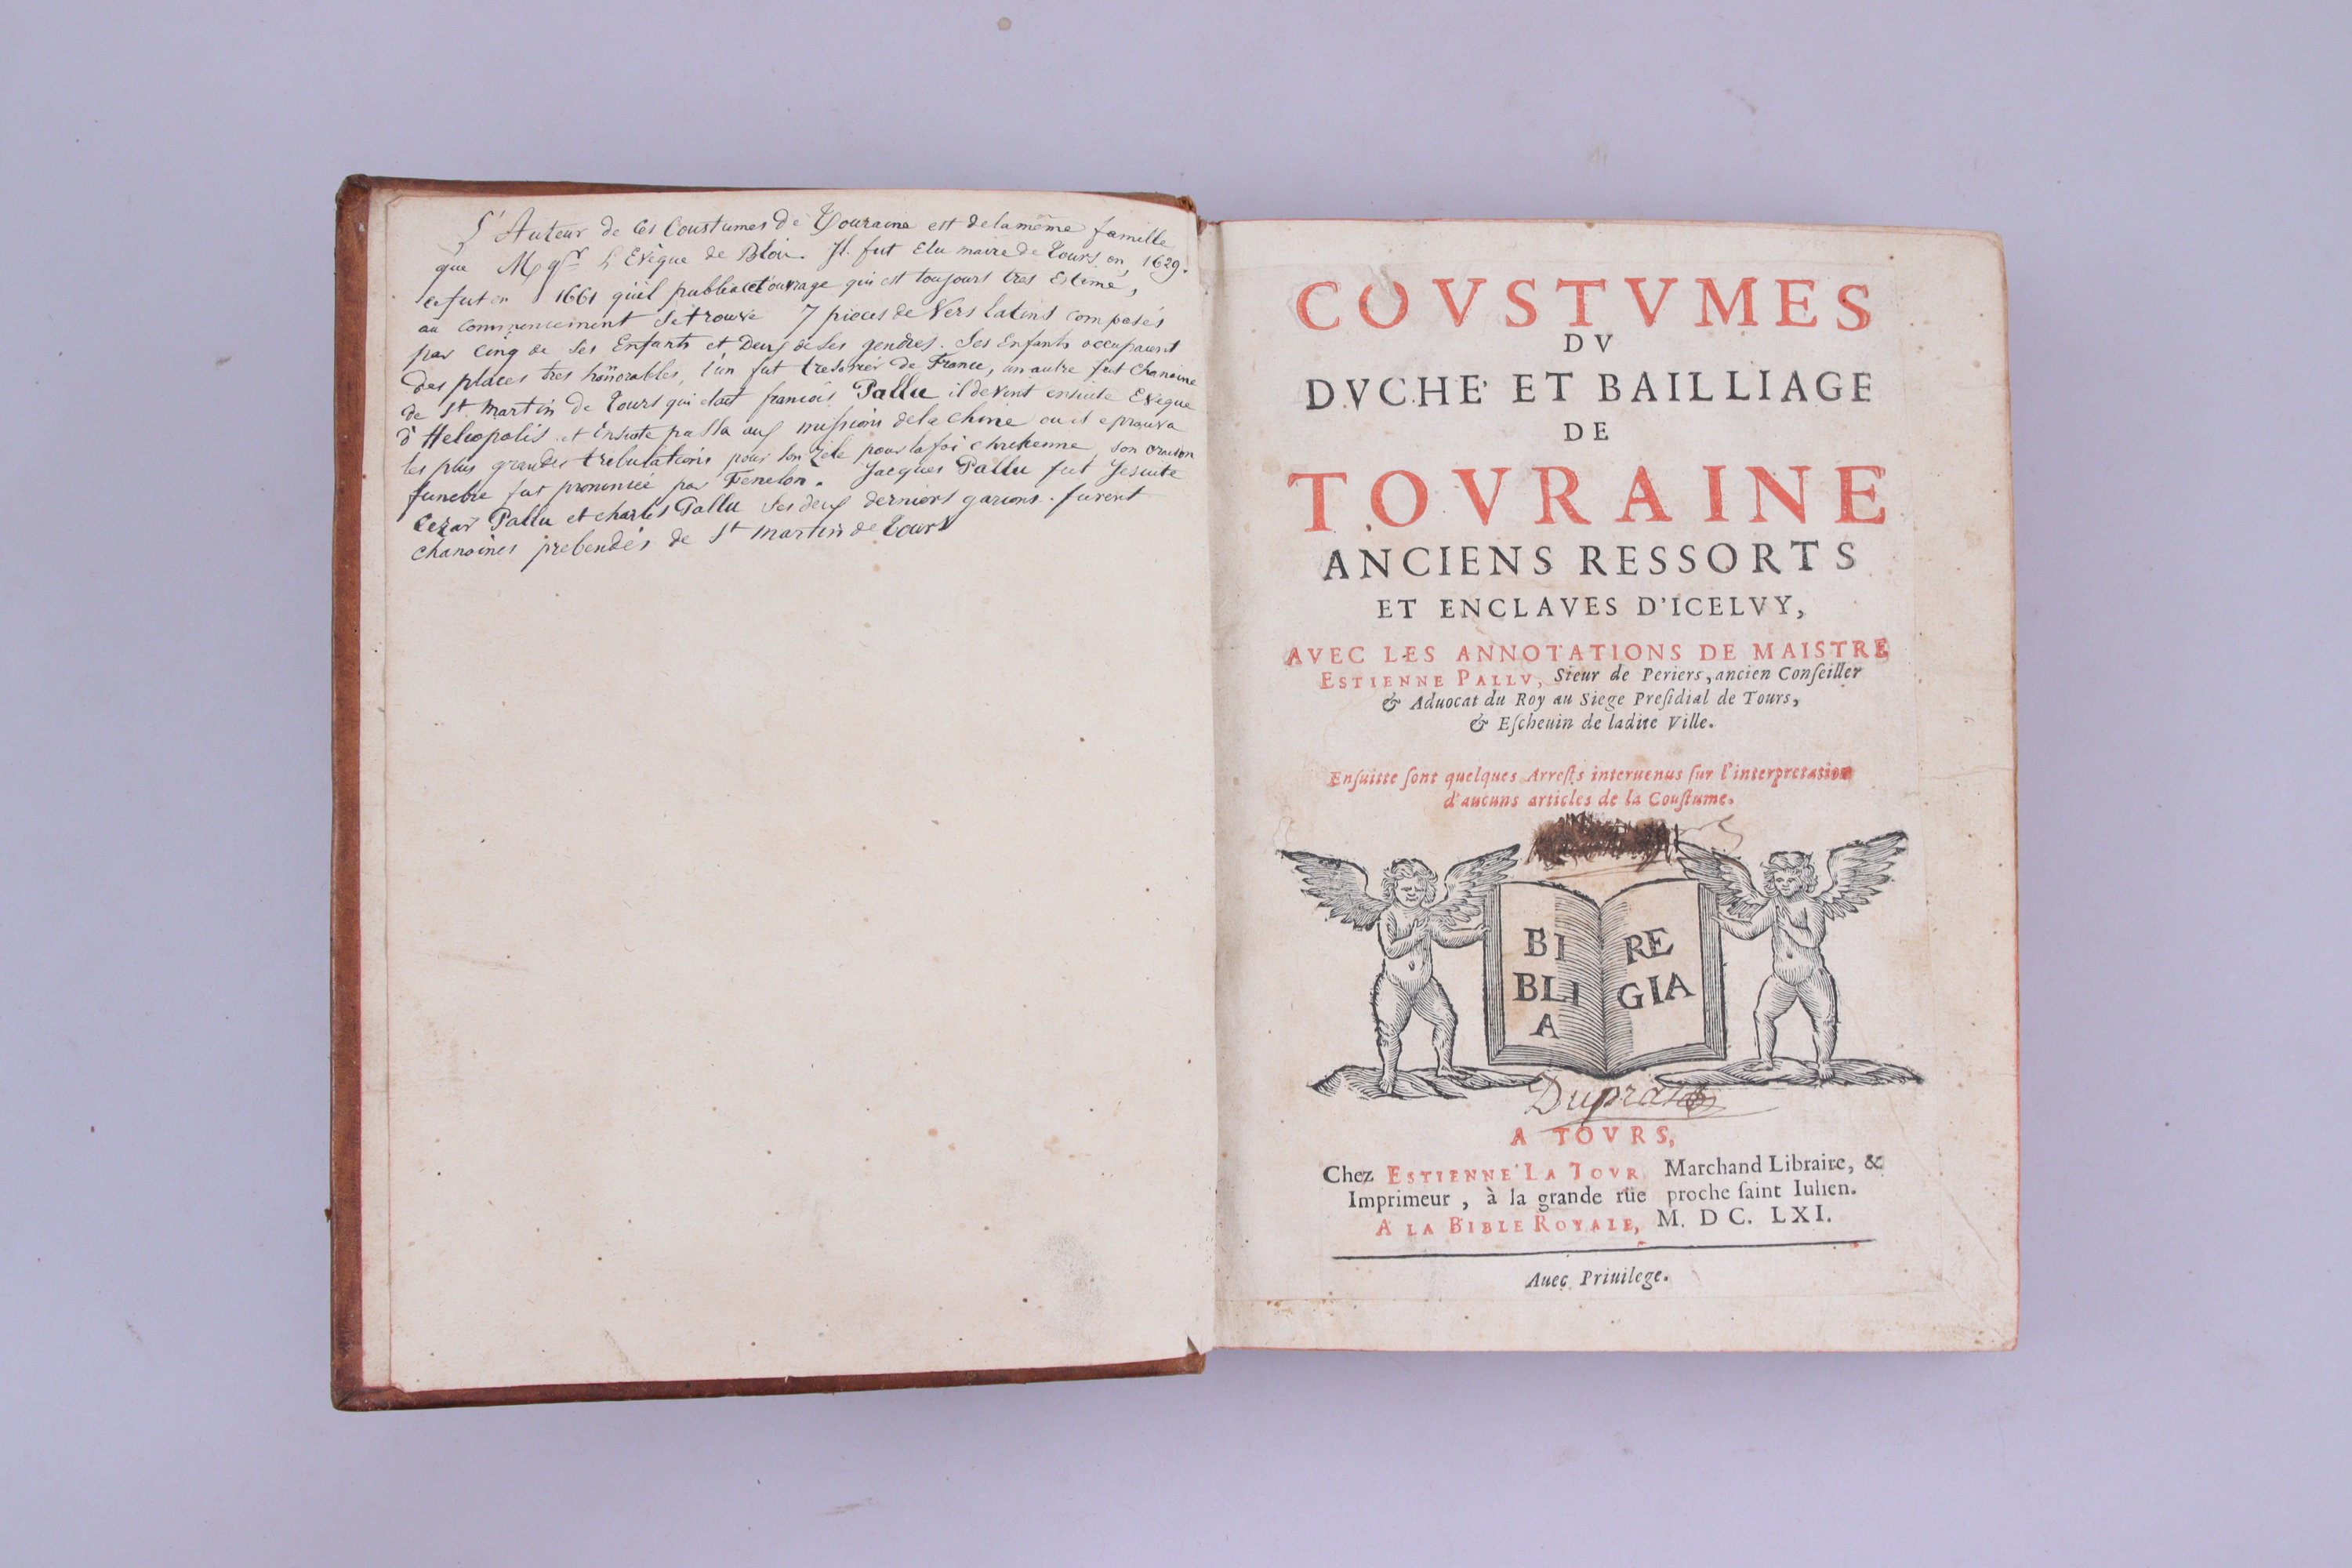 L'Auteur de ces Coustumes de Touraine est de la même famille
que Mgr L'Evêque de Blois. Il fut Elu maire de Tours en 1629.
ce fut en 1661 qu'il publia cet ouvrage qui est toujours tres Estimé,
au commencement se trouve 7 pieces de Vers latins composés
par cinq de ses Enfants et Deux de ses gendres. Ses Enfants occupaient
des places tres honorables, l'un fut tresorier de France, un autre fut chanoine
de St. Martin de Tours qui etait francois Pallu il devint ensuite Eveque
d'Heliopolis et ensuite passa aux missions de la chine ou il eprouva
les plus grandes tribulations pour son zele pour la foi chretienne, son oraison
funebre fut prononcée par Fenelon. Jacques Pallu fut Jesuite
Cezar Pallu et charles Pallu ses deux derniers garcons furent
chanoines prebendés de St martin de Tours
COVSTVMES
DV
DVCHE' ET BAILLIAGE
DE
TOVRAINE
ANCIENS RESSORTS
ET ENCLAVES D'ICELVY,
AVEC LES ANNOTATIONS DE MAISTRE
ESTIENNE PALLV, Sieur de Periers, ancien Conſeiller
& Aduocat du Roy au Siege Preſidial de Tours,
& Eſcheuin de ladite Ville.
Enſuitte ſont quelques Arreſts interuenus ſur l'interpretation
d'aucuns articles de la Couſtume.
BI RE
BLI GIA
A
Duprat
A TOVRS,
Chez ESTIENNE LA TOVR Marchand Libraire, &
Imprimeur, à la grande rüe proche ſaint Iulien.
A LA BIBLE ROYALE, M. DC. LXI.
Auec Priuilege.